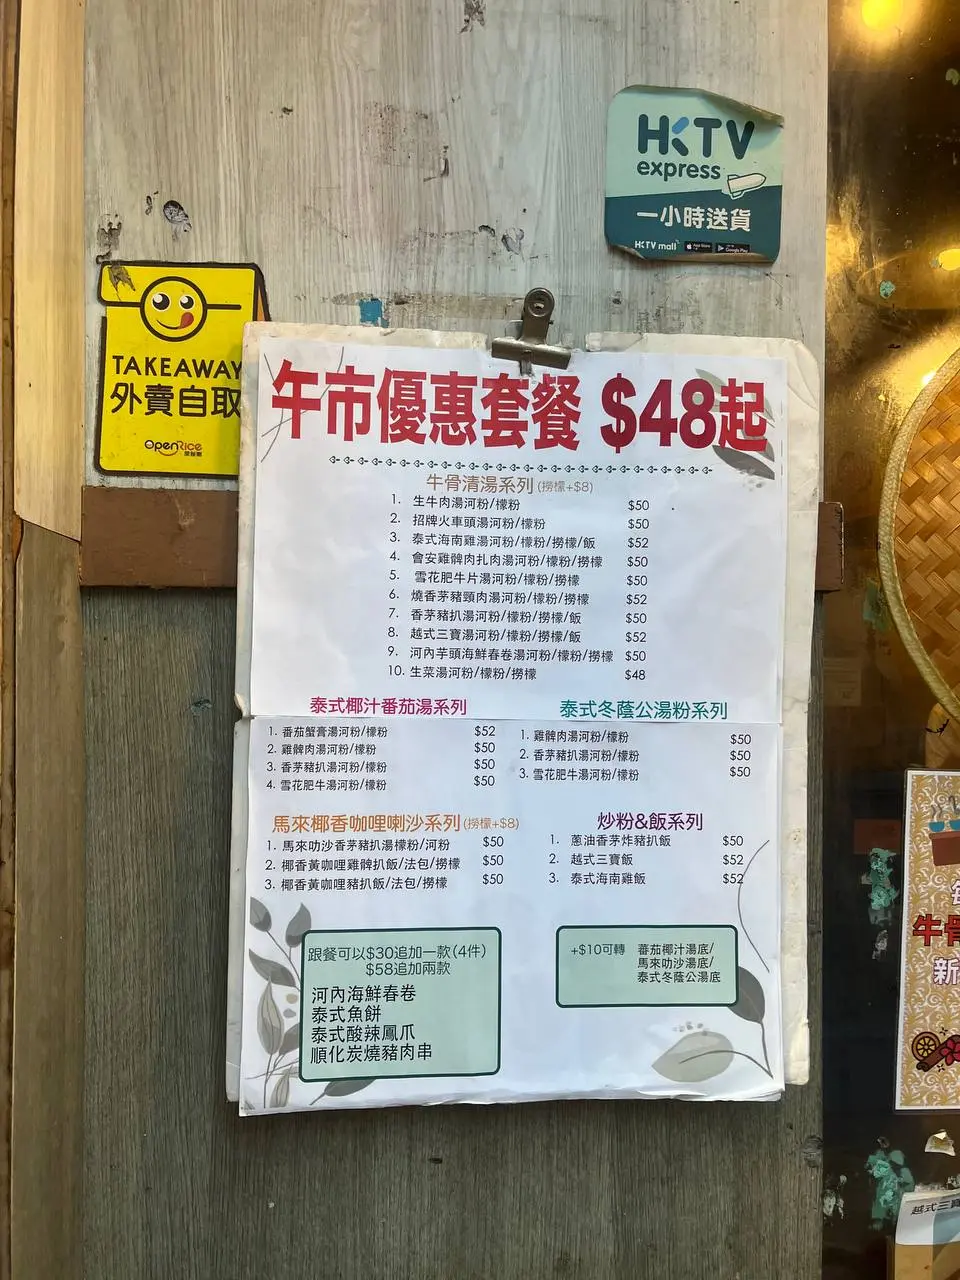 HKTV
express
一小時送貨
HKTV mall
App Store
Google Play
TAKEAWAY
外賣自取
OpenRice
開飯喇
午市優惠套餐 $48起
牛骨清湯系列 (撈檬+$8)
1. 生牛肉湯河粉/檬粉 $50
2. 招牌火車頭湯河粉/檬粉 $50
3. 泰式海南雞湯河粉/檬粉/撈檬/飯 $52
4. 會安雞髀肉扎肉湯河粉/檬粉/撈檬 $50
5. 雪花肥牛片湯河粉/檬粉/撈檬 $50
6. 燒香茅豬頸肉湯河粉/檬粉/撈檬 $52
7. 香茅豬扒湯河粉/檬粉/撈檬/飯 $50
8. 越式三寶湯河粉/檬粉/撈檬/飯 $52
9. 河內芋頭海鮮春卷湯河粉/檬粉/撈檬 $50
10. 生菜湯河粉/檬粉/撈檬 $48
泰式椰汁番茄湯系列
1. 番茄蟹膏湯河粉/檬粉 $52
2. 雞髀肉湯河粉/檬粉 $50
3. 香茅豬扒湯河粉/檬粉 $50
4. 雪花肥牛湯河粉/檬粉 $50
泰式冬蔭公湯粉系列
1. 雞髀肉湯河粉/檬粉 $50
2. 香茅豬扒湯河粉/檬粉 $50
3. 雪花肥牛湯河粉/檬粉 $50
馬來椰香咖哩喇沙系列 (撈檬+$8)
1. 馬來叻沙香茅豬扒湯檬粉/河粉 $50
2. 椰香黃咖哩雞髀扒飯/法包/撈檬 $50
3. 椰香黃咖哩豬扒飯/法包/撈檬 $50
炒粉&飯系列
1. 蔥油香茅炸豬扒飯 $50
2. 越式三寶飯 $52
3. 泰式海南雞飯 $52
跟餐可以$30追加一款(4件)
$58追加兩款
河內海鮮春卷
泰式魚餅
泰式酸辣鳳爪
順化炭燒豬肉串
+$10可轉 蕃茄椰汁湯底/
馬來叻沙湯底/
泰式冬蔭公湯底
牛骨
新
越式三寶